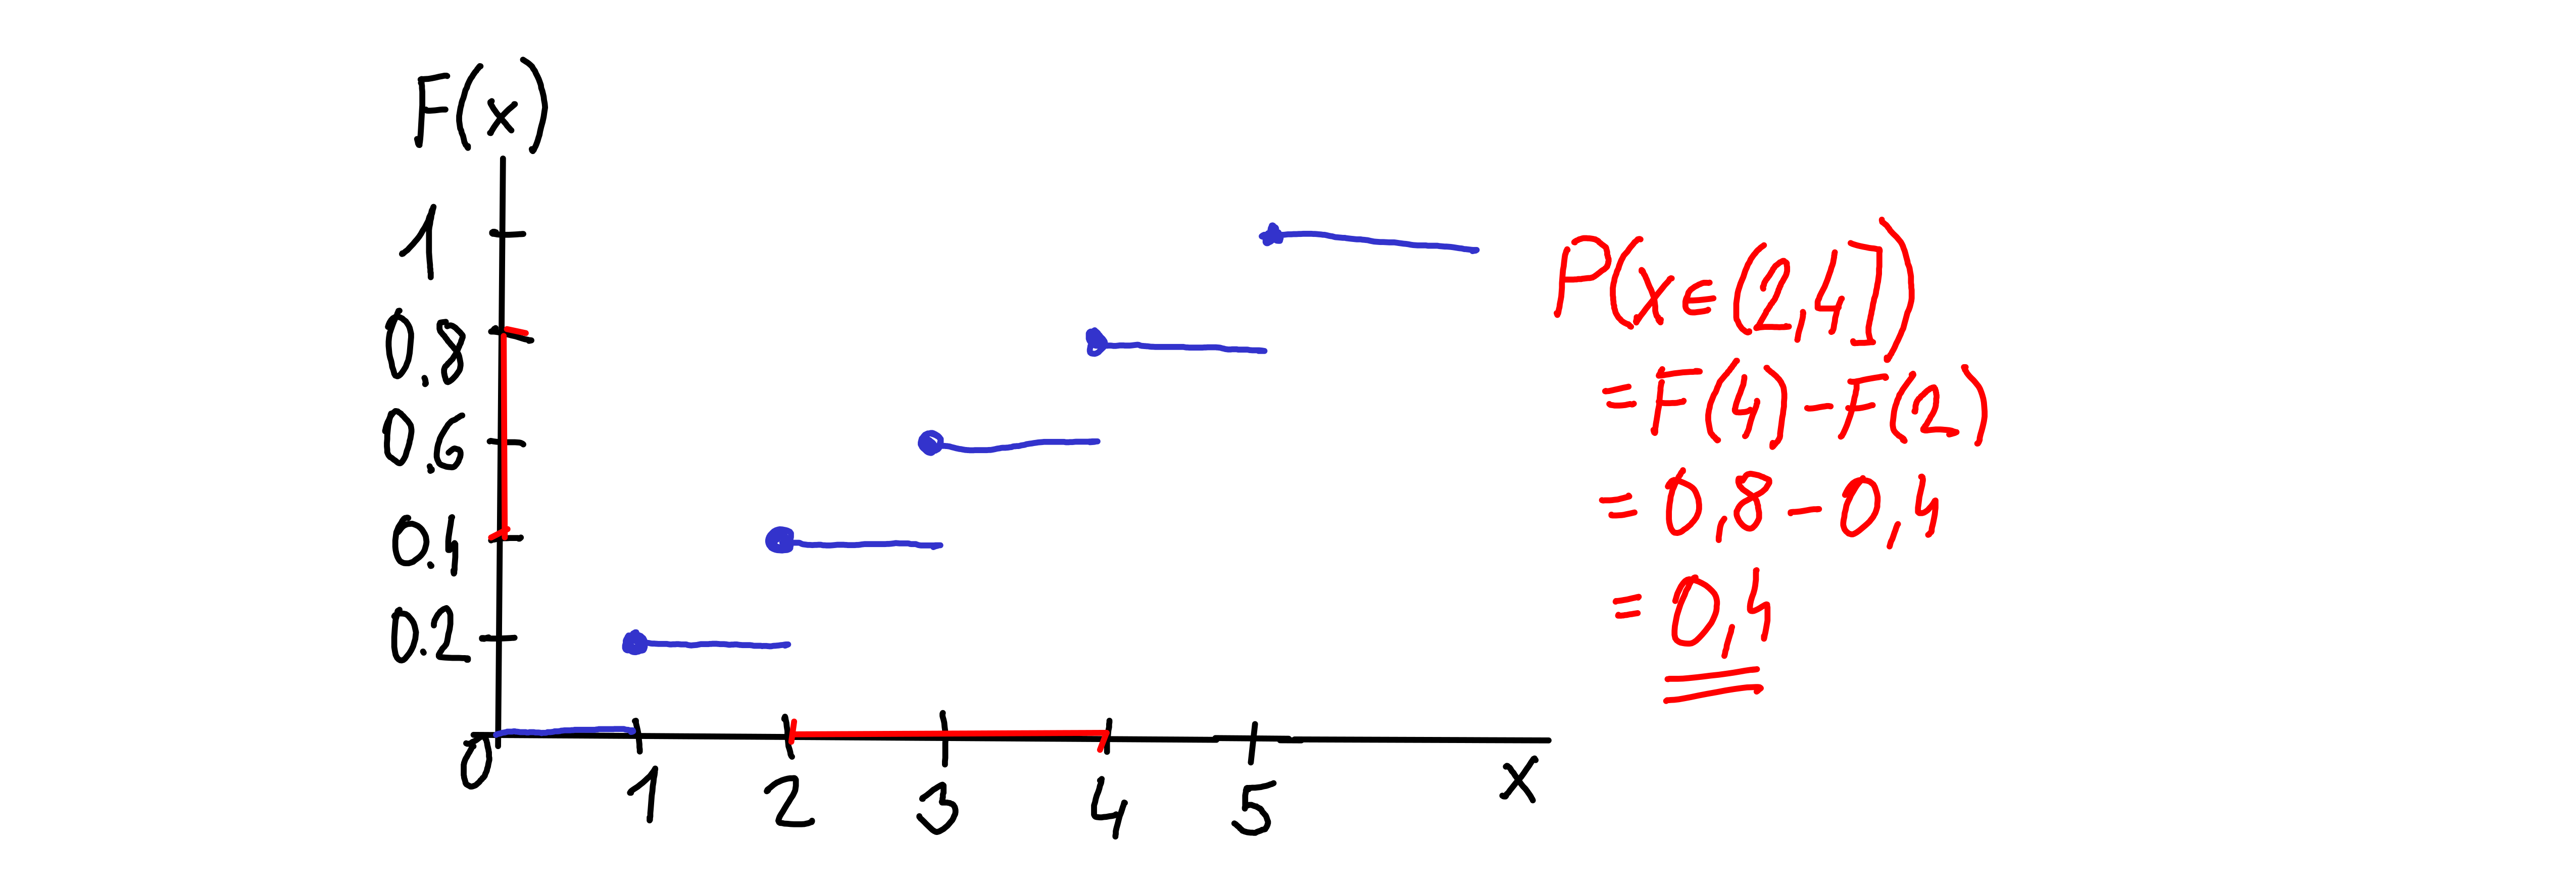 F(x)
1
0.8
0.6
0.4
0.2
0
1 2 3 4 5 x
P(x∈(2,4])
=F(4)-F(2)
=0,8-0,4
=0,4